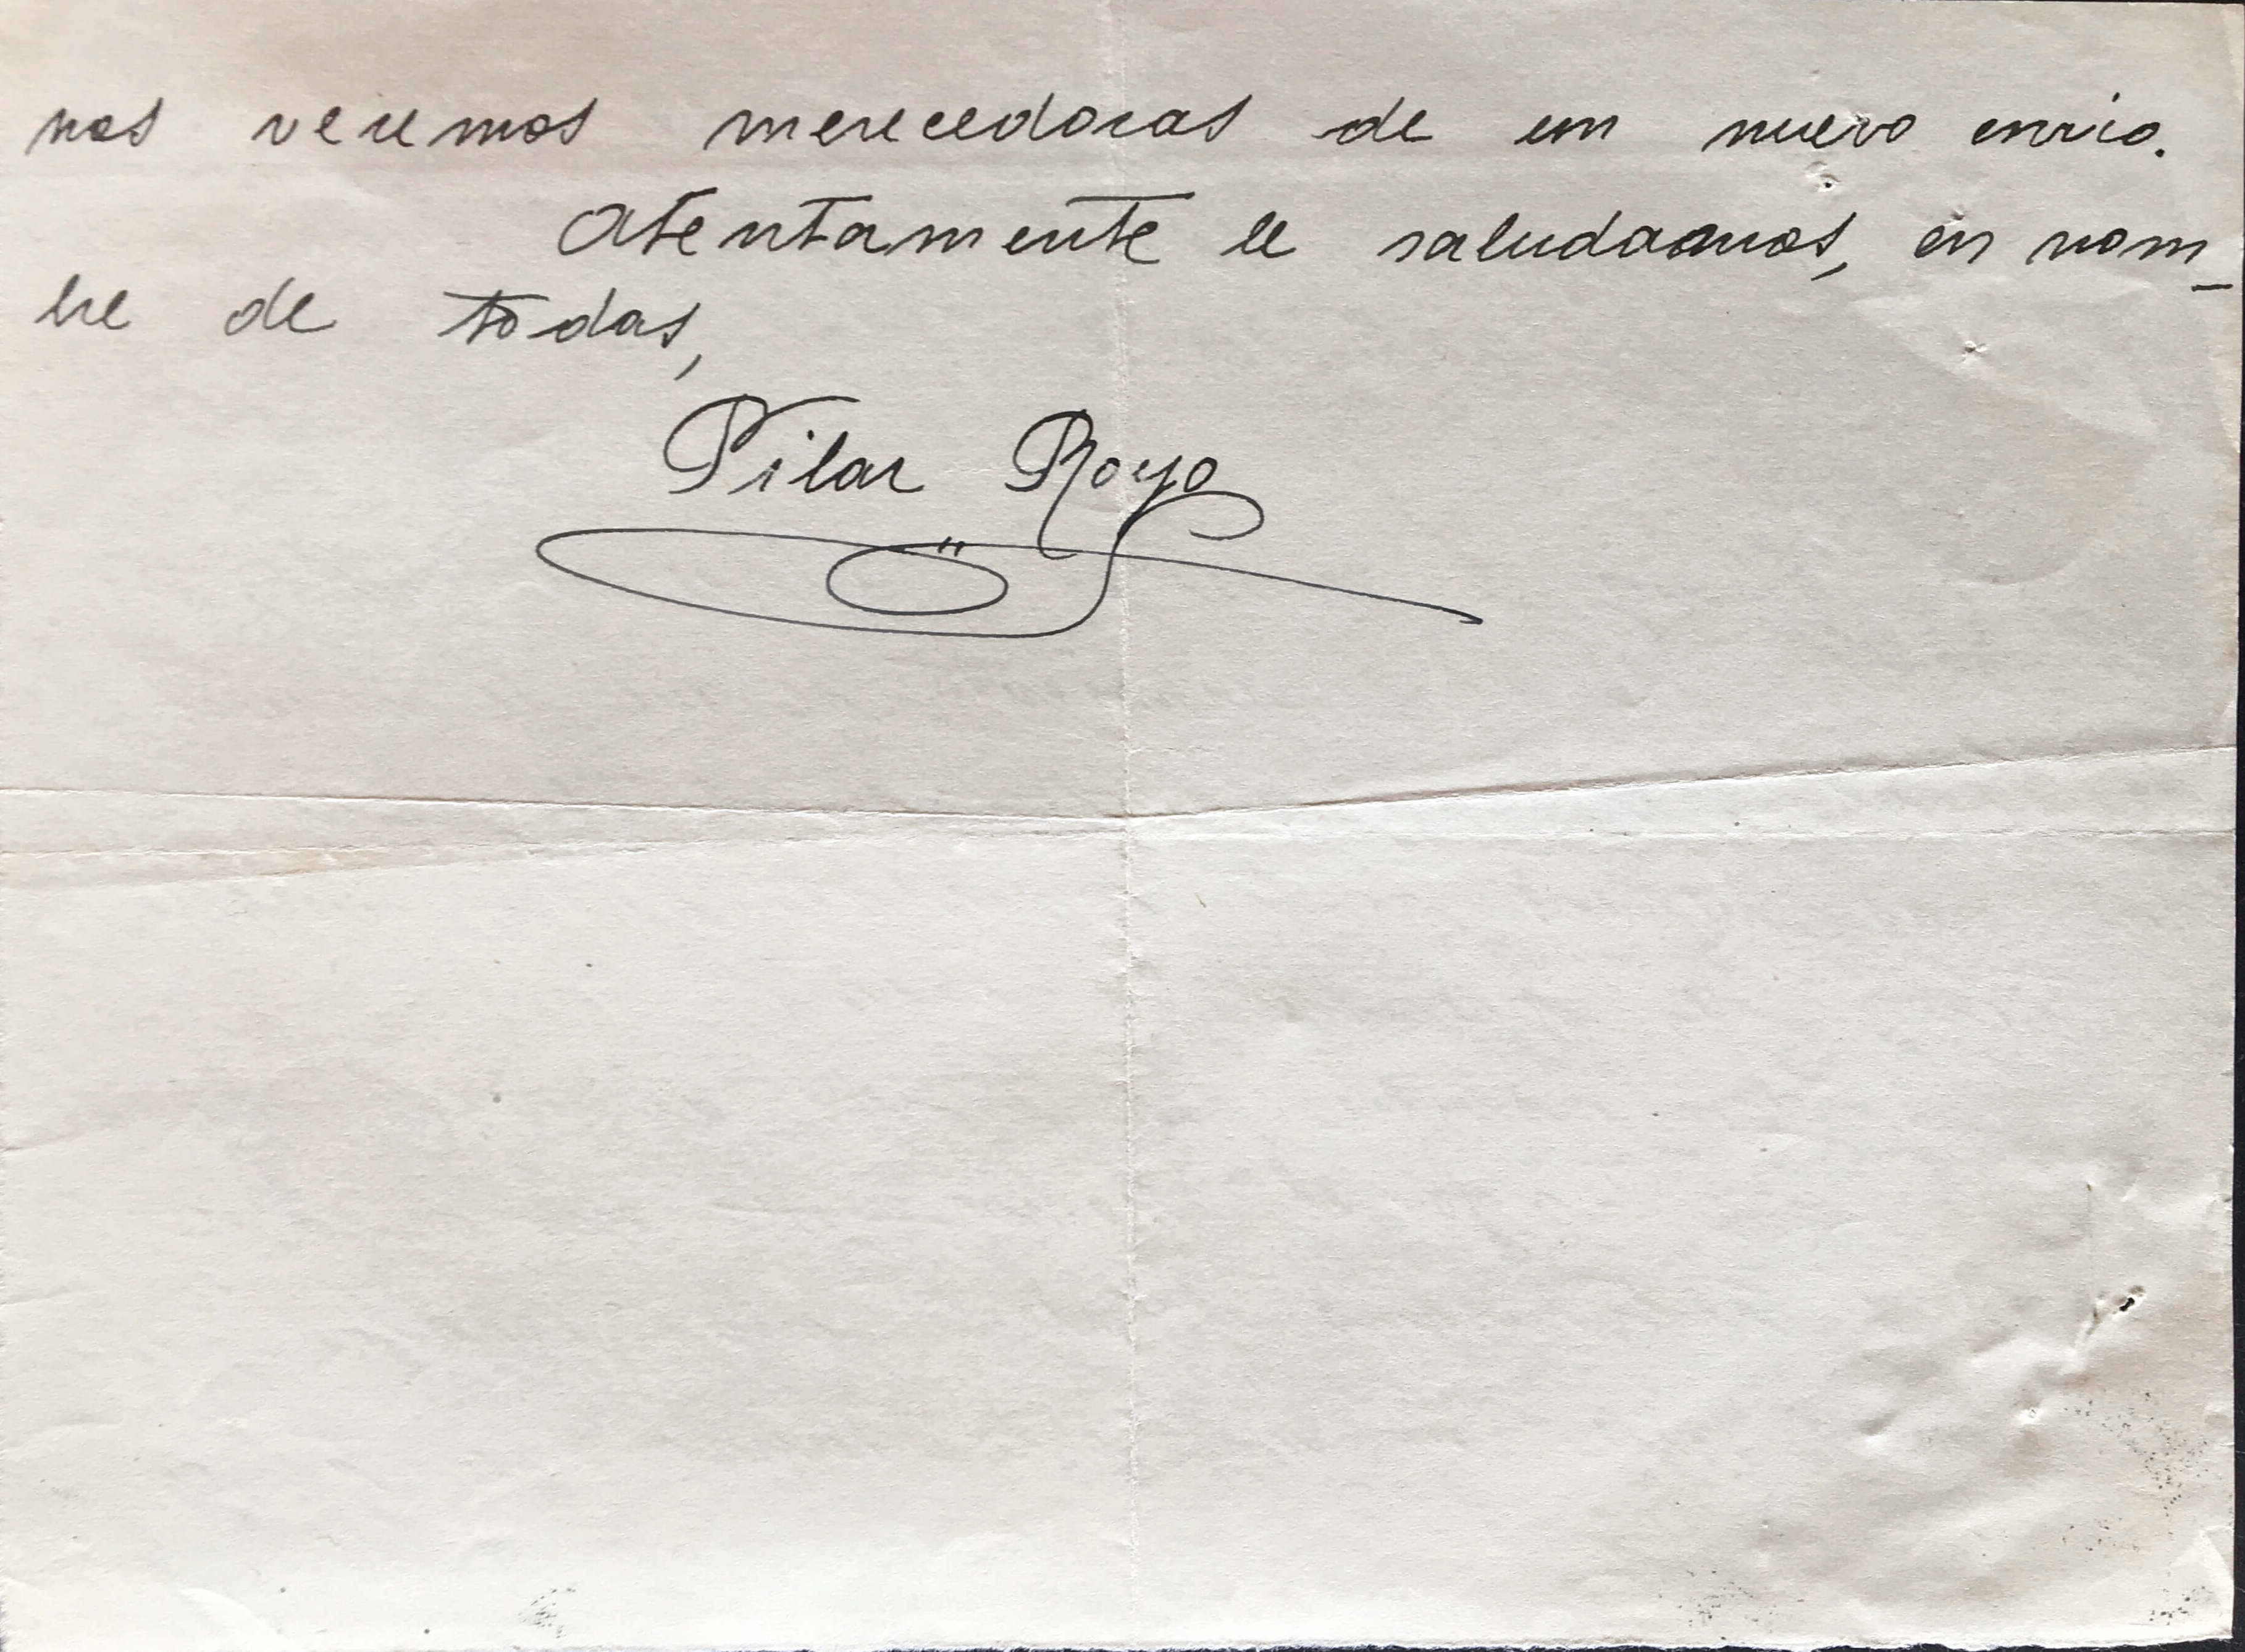 nos veremos merecedoras de un nuevo envio.
Atentamente le saludamos, en nom-
bre de todas,
Pilar Royo